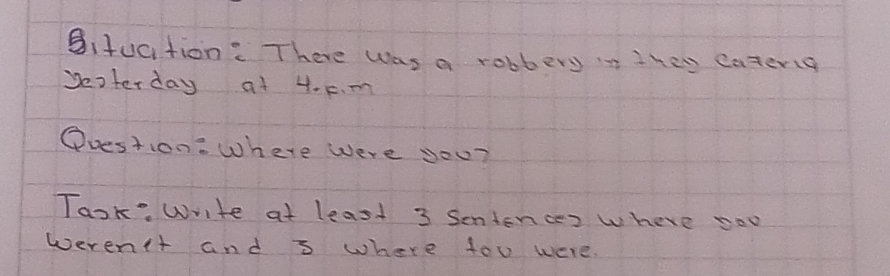 Situation: There was a robbery in they cafería
yesterday at 4.p.m
Question: Where were you?
Task: Write at least 3 sentences where you
weren't and 3 where you were.